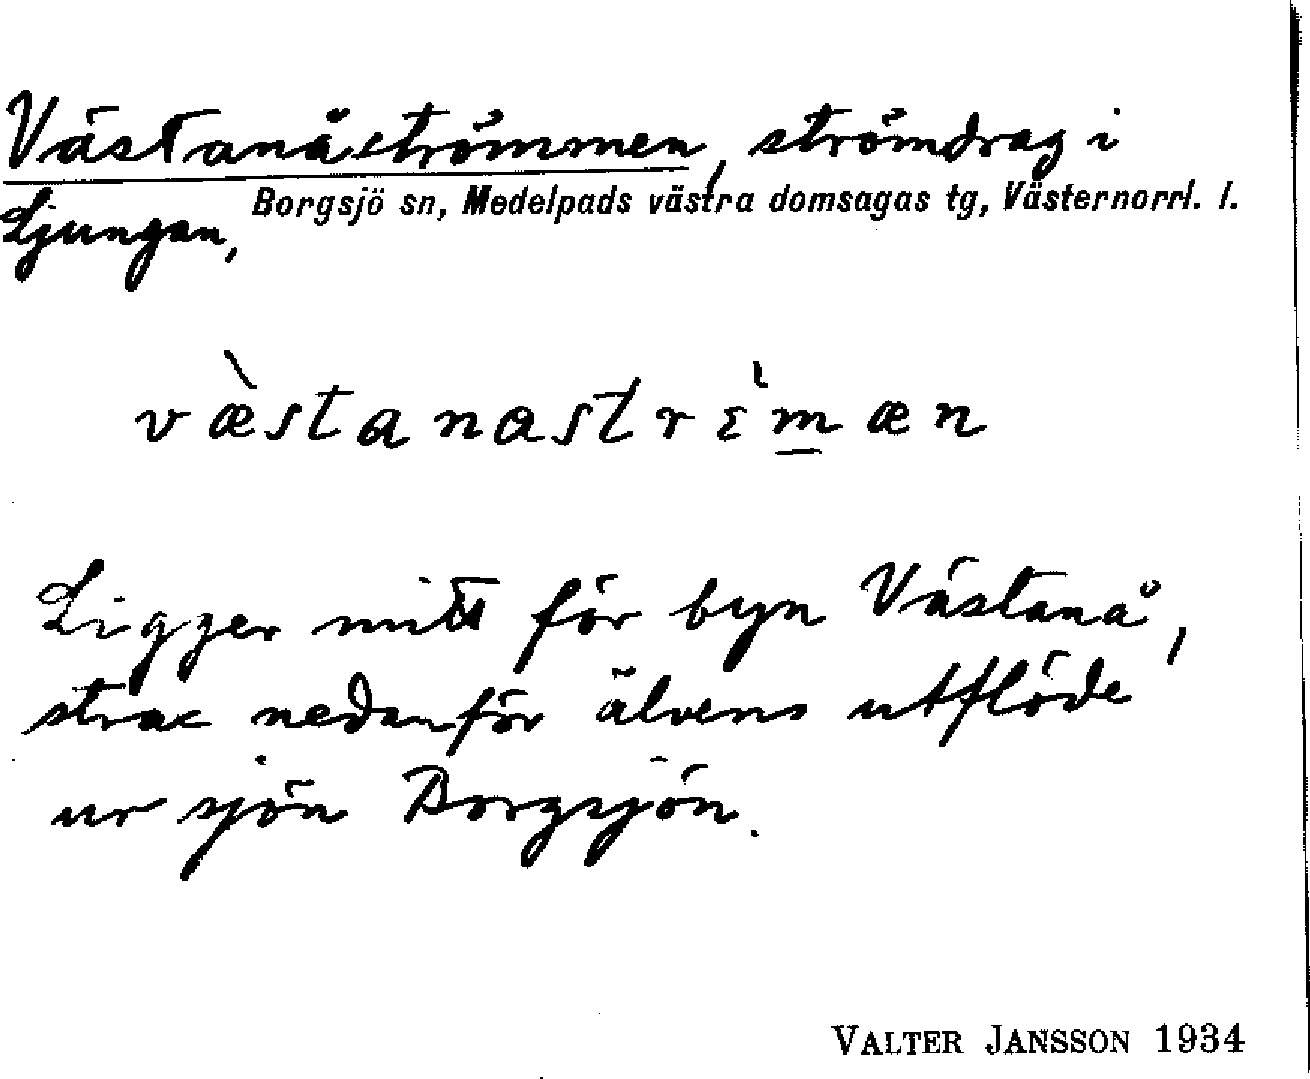 Västanåströmmen, strömdrag i
Ljungan, Borgsjö sn, Medelpads västra domsagas tg, Västernorrl. l.
væ̀stanastrɛ̀m̲æn
Ligger mitt för byn Västanå,
strax nedanför älvens utflöde
ur sjön Borgsjön.
VALTER JANSSON 1934